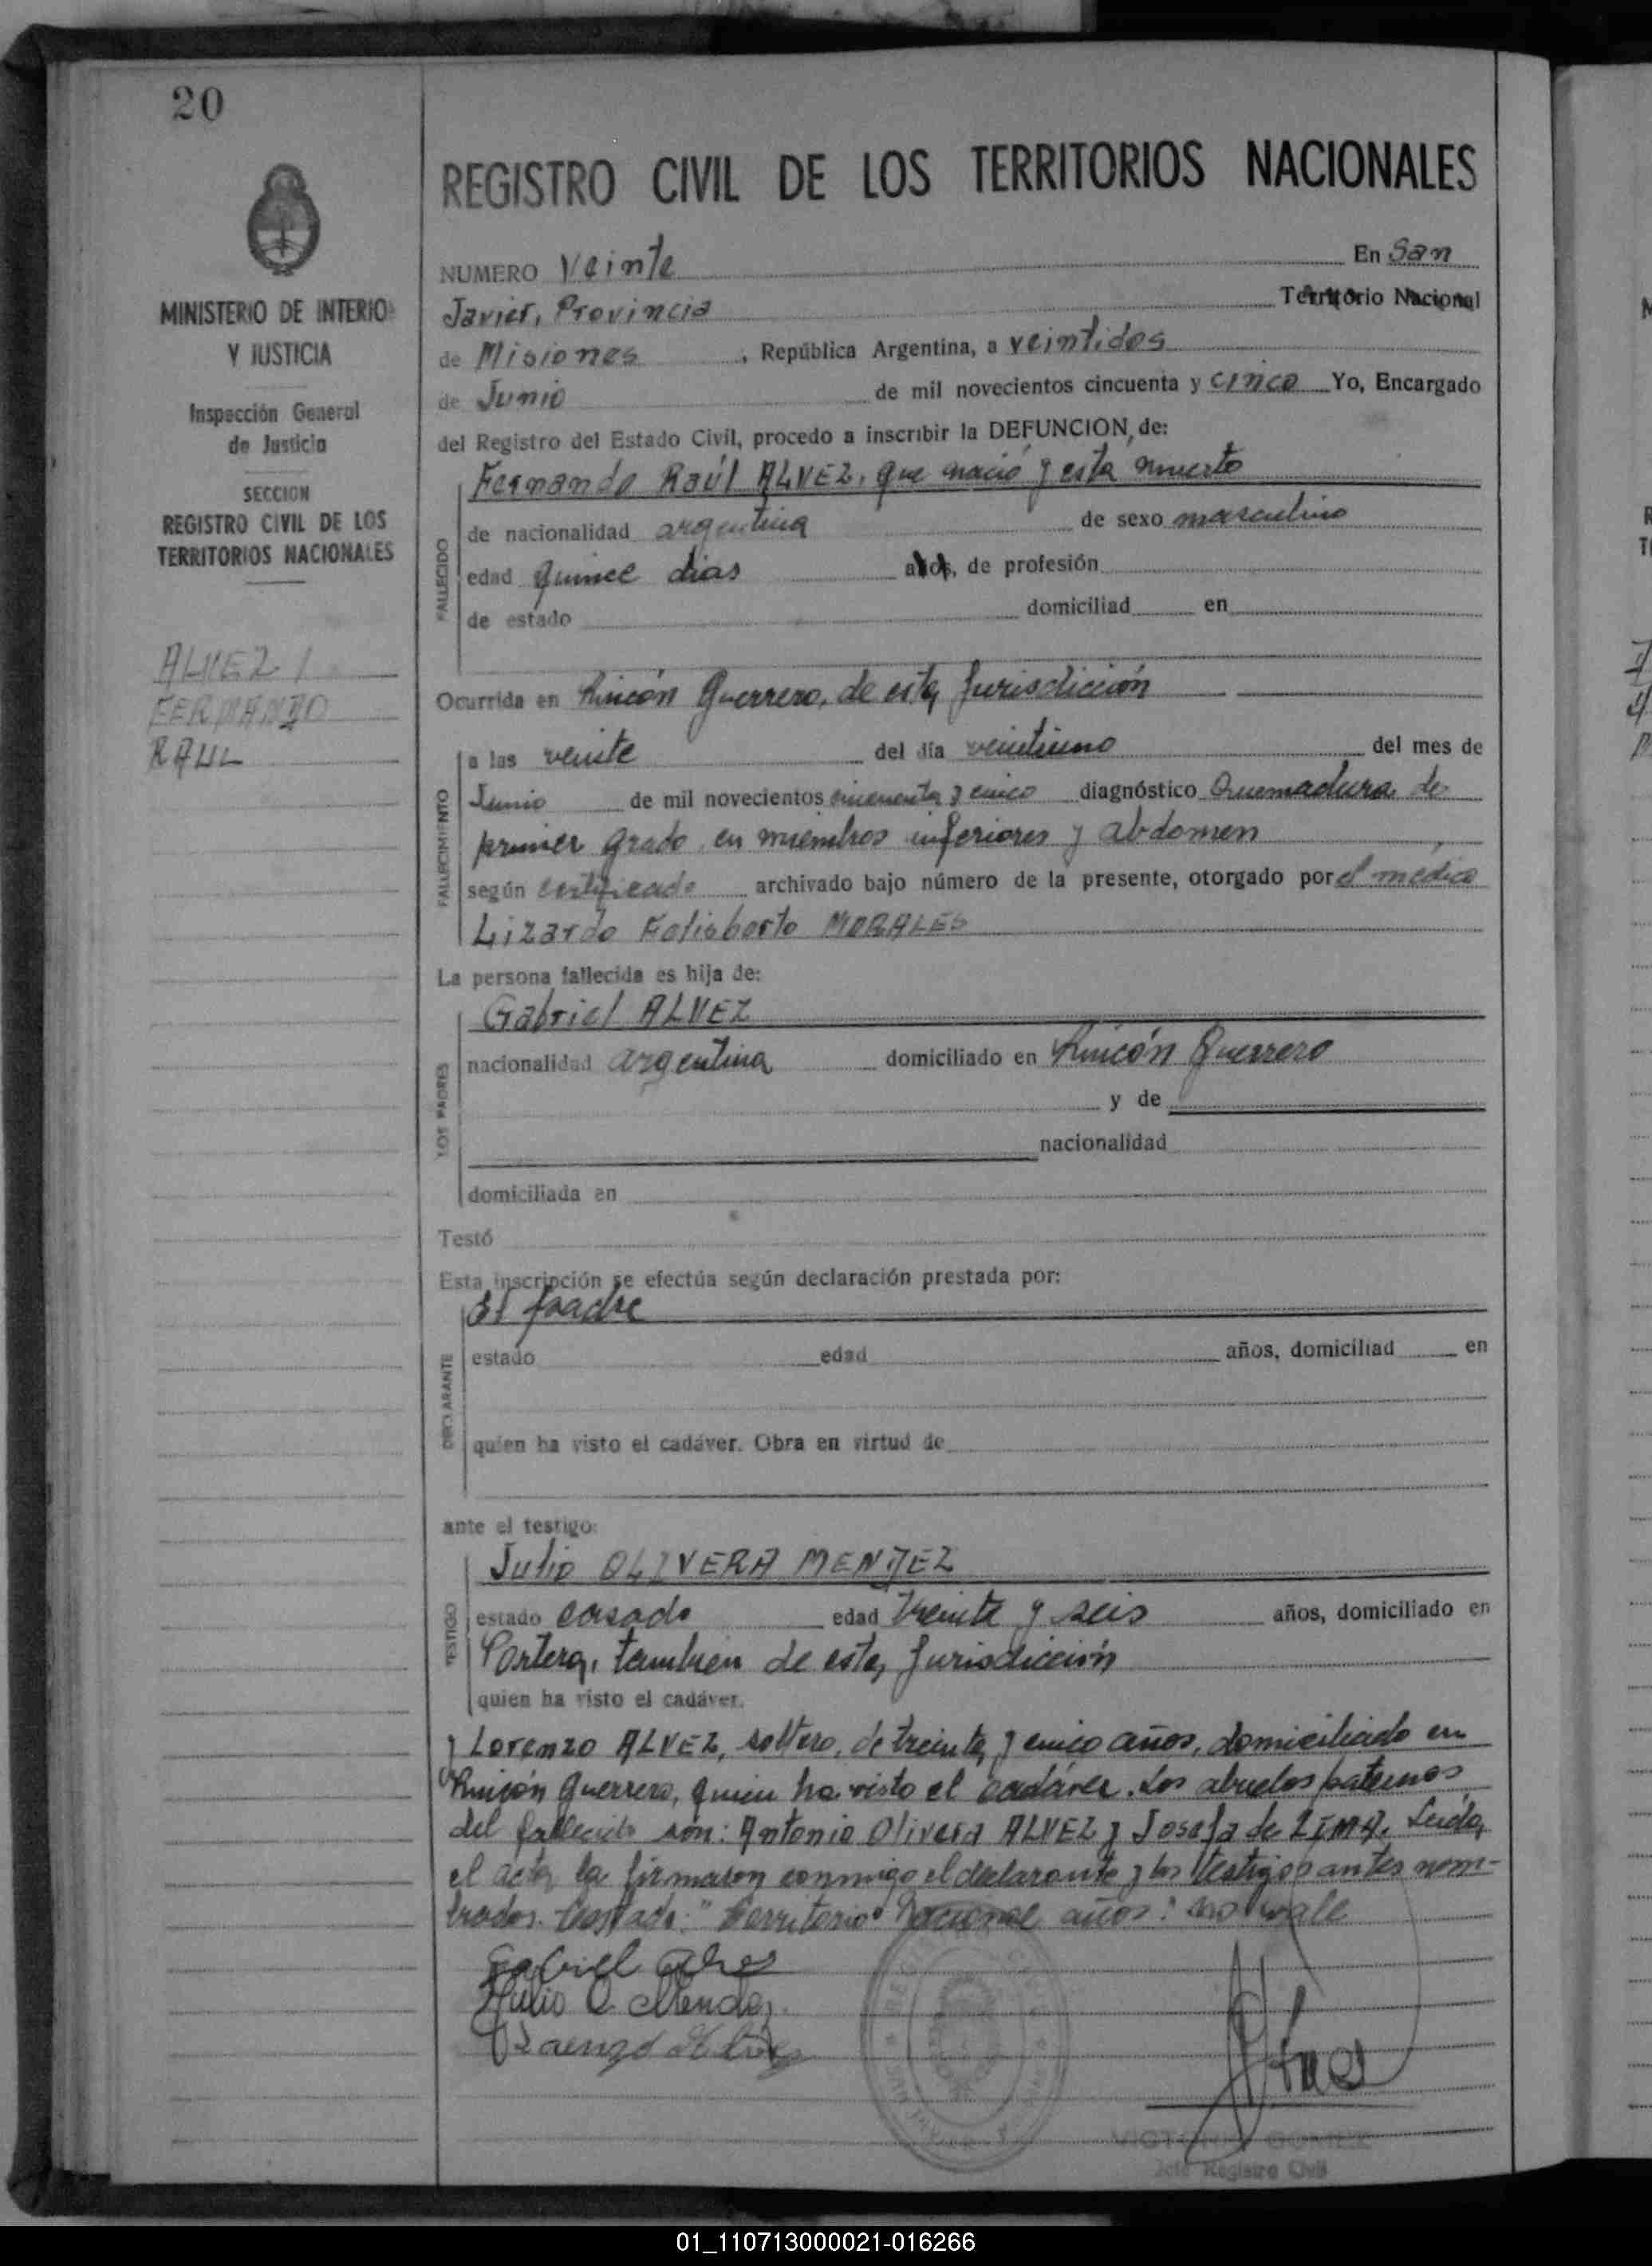 20
MINISTERIO DE INTERIO
Y JUSTICIA
Inspección General
de Justicia
SECCION
REGISTRO CIVIL DE LOS
TERRITORIOS NACIONALES
ALVEZ
FERNANDO
RAUL
REGISTRO CIVIL DE LOS TERRITORIOS NACIONALES
NUMERO Veinte En San
Javier, Provincia Territorio Nacional
de Misiones, República Argentina, a veintidos
de Junio de mil novecientos cincuenta y cinco Yo, Encargado
del Registro del Estado Civil, procedo a inscribir la DEFUNCION, de:
Fernando Raúl ALVEZ, que nació y esta muerto
FALLECIDO
de nacionalidad argentina de sexo masculino
edad quince dias años, de profesión
de estado domiciliad en
Ocurrida en Rincón Guerrero, de esta Jurisdicción
FALLECIMIENTO
a las veinte del día veintiuno del mes de
Junio de mil novecientos cincuenta y cinco diagnóstico Quemadura de
primer grado en miembros inferiores y abdomen
según certificado archivado bajo número de la presente, otorgado por el médico
Lizardo MORALES
La persona fallecida es hija de:
Gabriel ALVEZ
LOS PADRES
nacionalidad argentina domiciliado en Rincón Guerrero
y de
nacionalidad
domiciliada en
Testó
Esta inscripción se efectúa según declaración prestada por:
El padre
DECLARANTE
estado edad años, domiciliad en
quien ha visto el cadáver. Obra en virtud de
ante el testigo:
Julio OLIVERA MENDEZ
TESTIGO
estado casado edad treinta y seis años, domiciliado en
Portera, tambien de esta Jurisdicción
quien ha visto el cadáver.
y Lorenzo ALVEZ, soltero, de treinta y cinco años, domiciliado en
Rincón Guerrero, quien ha visto el cadáver. Los abuelos paternos
del fallecido son: Antonio Olivera ALVEZ y Josefa de LIMA. Leida
el acta la firmaron conmigo el declarante y los testigos antes nom-
brados. Testado: "Territorio Nacional años": no vale
Gabriel Alves
Julio O. Mendez
Lorenzo Alves
GOMEZ
Jefe Registro Civil
01_110713000021-016266